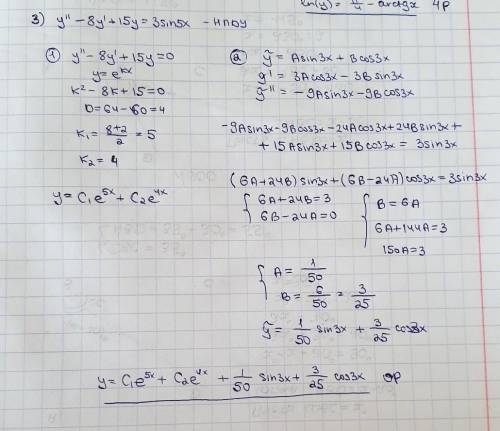 ln(y) = π/4 - arctgx ЧР
3) y'' - 8y' + 15y = 3sin5x - НЛДУ
① y'' - 8y' + 15y = 0
y = e^kx
k² - 8k + 15 = 0
D = 64 - 60 = 4
k₁ = (8+2)/2 = 5
k₂ = 4
y = C₁e^5x + C₂e^4x
② ỹ = Asin3x + Bcos3x
ỹ' = 3Acos3x - 3Bsin3x
ỹ'' = -9Asin3x - 9Bcos3x
-9Asin3x - 9Bcos3x - 24Acos3x + 24Bsin3x +
+ 15Asin3x + 15Bcos3x = 3sin3x
(6A+24B)sin3x + (6B-24A)cos3x = 3sin3x
{ 6A+24B = 3
6B-24A = 0
{ B = 6A
6A+144A = 3
150A = 3
{ A = 1/50
B = 6/50 = 3/25
ỹ = 1/50 sin3x + 3/25 cos3x
y = C₁e^5x + C₂e^4x + 1/50 sin3x + 3/25 cos3x ОР